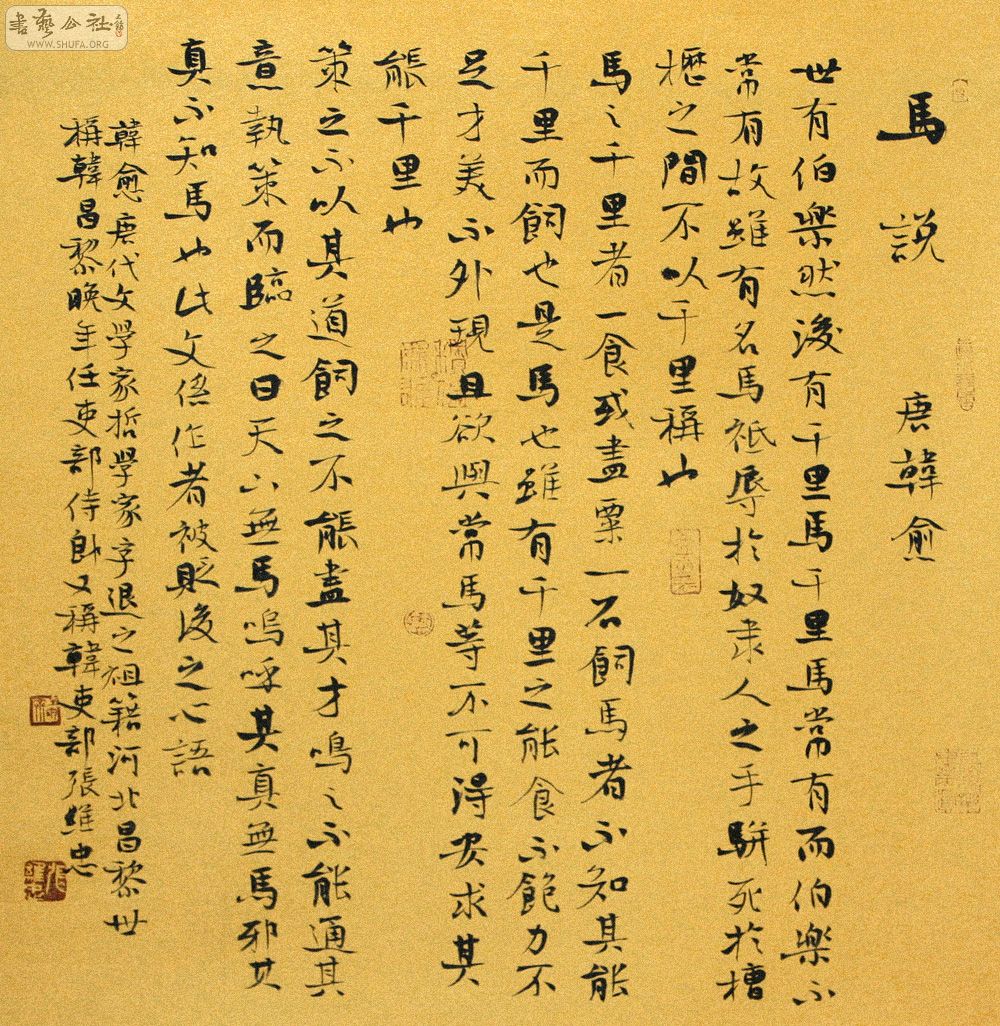 書藝公社
WWW.SHUFA.ORG
馬說 唐韓愈
世有伯樂然後有千里馬千里馬常有而伯樂不
常有故雖有名馬祗辱於奴隶人之手駢死於槽
櫪之間不以千里稱也
馬之千里者一食或盡粟一石飼馬者不知其能
千里而飼也是馬也雖有千里之能食不飽力不
足才美不外現且欲與常馬等不可得安求其
能千里也
策之不以其道飼之不能盡其才鳴之不能通其
意執策而臨之曰天下無馬嗚呼其真無馬邪其
真不知馬也此文係作者被貶後之心語
韓愈唐代文學家哲學家字退之祖籍河北昌黎世
稱韓昌黎晚年任吏部侍郎又稱韓吏部張維忠